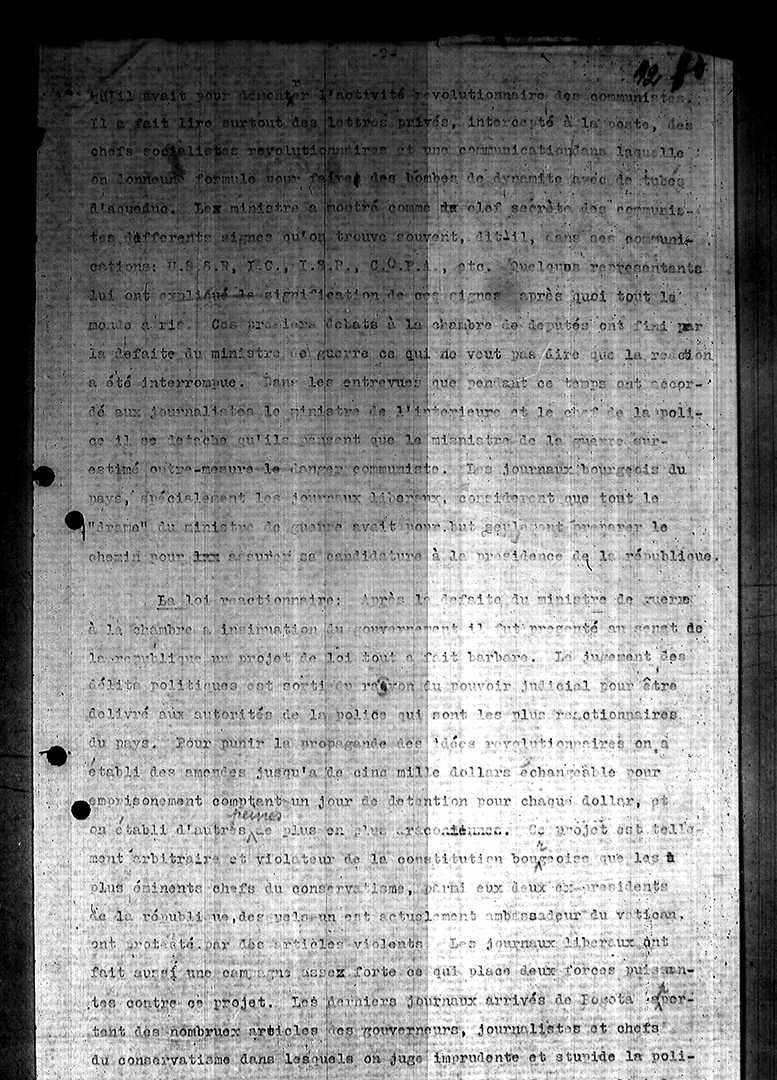 -2-
12
qu'il avait pour demontrer l'activité revolutionnaire des communistes.
Il a fait lire surtout des lettres privés, intercepté à la poste, des
chefs socialistes revolutionnaires et une communicationdans laquelle
on donneune formule pour faire des bombes de dynamite avec de tubes
d'aqueduc. Lex ministre a montré comme clef secrète des communis-
tes differents signes qu'on trouve souvent, dit-il, dans ses communi-
cations: U.S.S.R, I.C., I.S.R., C.O.P.A., etc. Quelques representants
lui ont expliqué la signification de ces signes après quoi tout le
monde a ris. Ces premiers debats à la chambre de deputés ont fini par
la defaite du ministre de guerre ce qui ne veut pas dire que la reaction
a été interrompue. Dans les entrevues que pendant ce temps ont accor-
dé aux journalistes le ministre de l'interieure et le chef de la poli-
ce il se detache qu'ils pensent que le misnistre de la guerre sur-
estimé outre-mesure le danger communiste. Les journaux bourgeois du
pays, spécialement les journaux liberaux, considerent que tout le
"drame" du ministre de guerre avait pour but seulement preparer le
chemin pour xxx assurer sa candidature à la presidence de la république.
La loi reactionnaire: Après la defaite du ministre de guerre
à la chambre a insinuation du gouvernement il fut presenté au senat de
la republique un projet de loi tout a fait barbare. Le jugement des
délits politiques est sorti du rayon du pouvoir judicial pour être
delivré aux autorités de la police qui sont les plus reactionnaires
du pays. Pour punir la propagande des idées revolutionnaires on a
établi des amendes jusqu'a de cinq mille dollars échangeable pour
emprisonement comptant un jour de detention pour chaque dollar, et
peines
on établi d'autres de plus en plus draconiénnes. Ce projet est telle-
ment arbitraire et violateur de la constitution bourgeoise que les
plus éminents chefs du conservatisme, parmi eux deux ex-presidents
de la république, desquels un est actuelement ambassadeur du vatican,
ont protesté par des articles violents. Les journaux liberaux ont
fait aussi une campagne assex forte ce qui place deux forces puissan-
tes contre ce projet. Les derniers journaux arrivés de Bogota apor-
tent des nombruex articles des gouverneurs, journalistes et chefs
du conservatisme dans lesquels on juge imprudente et stupide la poli-